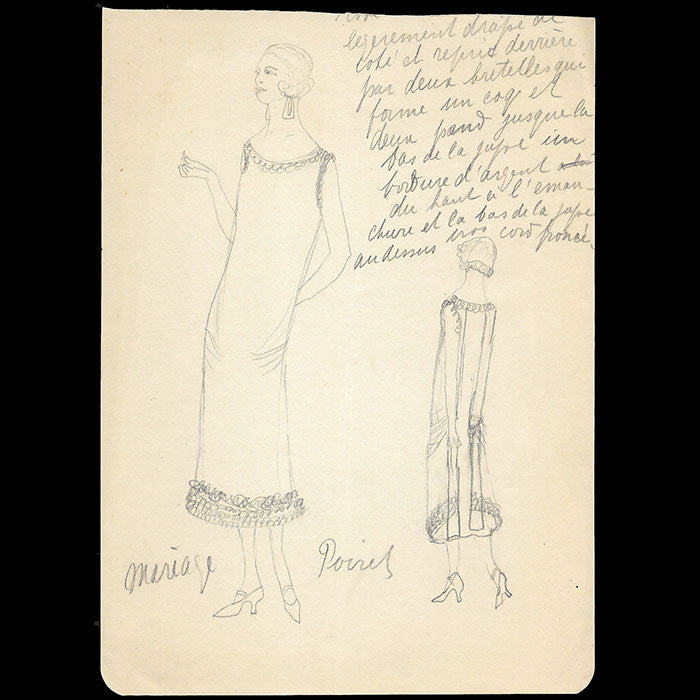 légerement drapé de
coté et repris derrière
par deux bretelles qui
forme un coq et
deux pand jusque la
bas de la jupe un
bordure d'argent
du haut a l'eman-
chure et la bas de la jupe
au dessus gros cord froncé,
Mariage Poiret